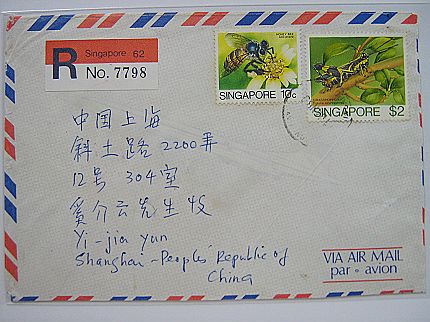 R
Singapore 62
No. 7798
HONEY BEE
SINGAPORE 10c
SINGAPORE $2
中国上海
斜土路2200弄
12号 304室
贠介云先生收
Yi-jia yun
Shanghai - Peoples' Republic of
China
VIA AIR MAIL
par • avion